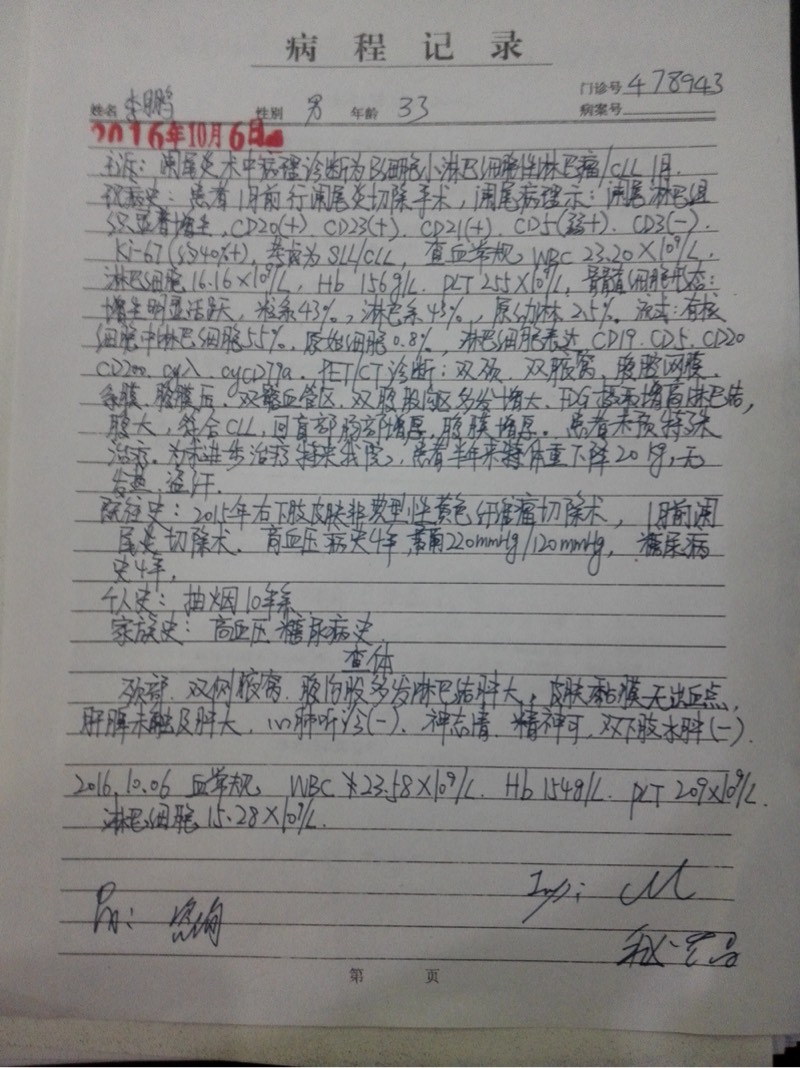 病程记录
门诊号 478943
姓名 李鹏 性别 男 年龄 33 病案号
2016年10月6日
主诉：阑尾炎术中病理诊断为B细胞小淋巴细胞性淋巴瘤/CLL 1月.
现病史：患者1月前行阑尾炎切除手术，阑尾病理示：阑尾淋巴组
织显著增生，CD20(+). CD23(+). CD21(+). CD5(弱+). CD3(-).
Ki-67(约40%+), 考虑为SLL/CLL, 查血常规, WBC 23.20×10^9/L.
淋巴细胞16.16×10^9/L, Hb 156g/L. PLT 255×10^9/L, 骨髓细胞形态：
增生明显活跃，粒系43%., 淋巴系43%., 原幼淋2.5%. 流式：有核
细胞中淋巴细胞55%. 原始细胞0.8%, 淋巴细胞表达CD19. CD5. CD20
CD200. cyλ. cyCD79a. PET/CT诊断：双颈. 双腋窝. 腹腔网膜.
系膜. 腹膜后. 双髂血管区. 双腹股沟区多发增大、FDG 增高淋巴结,
符合CLL, 回盲部肠部增厚, 腹膜增厚. 患者未预特殊
治疗. 为求进步治疗特来我院, 患者半年来体重下降20kg, 无
发热, 盗汗.
既往史：2015年右下肢皮肤非典型性黄色纤维瘤切除术, 1月前阑
尾炎切除术. 高血压病史4年, 220mmHg/120mmHg, 糖尿病
史4年,
个人史：抽烟10年余
家族史：高血压糖尿病史
查体
颈部. 双侧腋窝. 腹沟股多发淋巴结肿大. 皮肤黏膜无出血点,
肝脾未触及肿大. 心肺听诊(-). 神志清. 精神可, 双下肢水肿(-).
2016.10.06 血常规 WBC *23.58×10^9/L. Hb 154g/L. PLT 209×10^9/L.
淋巴细胞15.28×10^9/L.
Imp: CLL
第 页